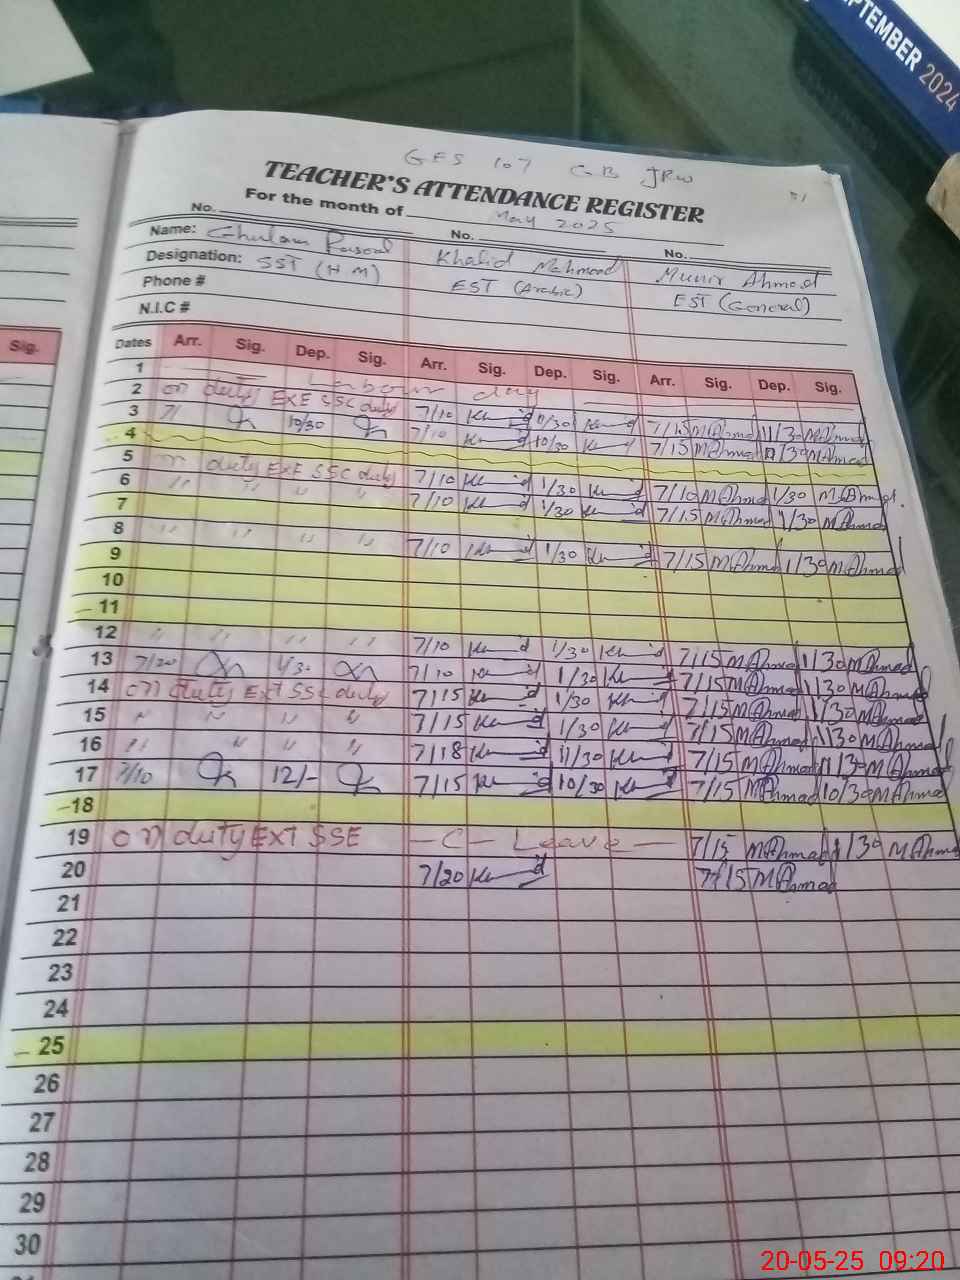 SEPTEMBER 2024
GES 107 GB JRW
TEACHER'S ATTENDANCE REGISTER
For the month of May 2025
No. No. No.
Name: Ghulam Rasool Khalid Mahmood Munir Ahmad
Designation: SST (HM) EST (Arabic) EST (General)
Phone #
N.I.C #
Sig.
Dates Arr. Sig. Dep. Sig. Arr. Sig. Dep. Sig. Arr. Sig. Dep. Sig.
1 Labour day
2 on duty EXE SSC duty 7/10 10/30 7/15 MAhmad 11/30 MAhmad
3 7/ 10/30 7/10 10/30 7/15 MAhmad 11/30 MAhmad
4
5 on duty EXE SSC duty 7/10 1/30 7/10 MAhmad 1/30 MAhmad
6 " " " " 7/10 1/30 7/15 MAhmad 1/30 MAhmad
7
8 " " " " 7/10 1/30 7/15 MAhmad 1/30 MAhmad
9
10
11
12 " " " " 7/10 1/30 7/15 MAhmad 1/30 MAhmad
13 7/20 1/30 7/10 1/30 7/15 MAhmad 1/30 MAhmad
14 on duty Ext SSC duty 7/15 1/30 7/15 MAhmad 1/30 MAhmad
15 " " " " 7/15 1/30 7/15 MAhmad 1/30 MAhmad
16 " " " " 7/18 11/30 7/15 MAhmad 11/30 MAhmad
17 7/10 12/- 7/15 10/30 7/15 MAhmad 10/30 MAhmad
18
19 on duty EXT SSE - C - Leave - 7/15 MAhmad 1/30 MAhmad
20 7/20 7/15 MAhmad
21
22
23
24
25
26
27
28
29
30
20-05-25 09:20